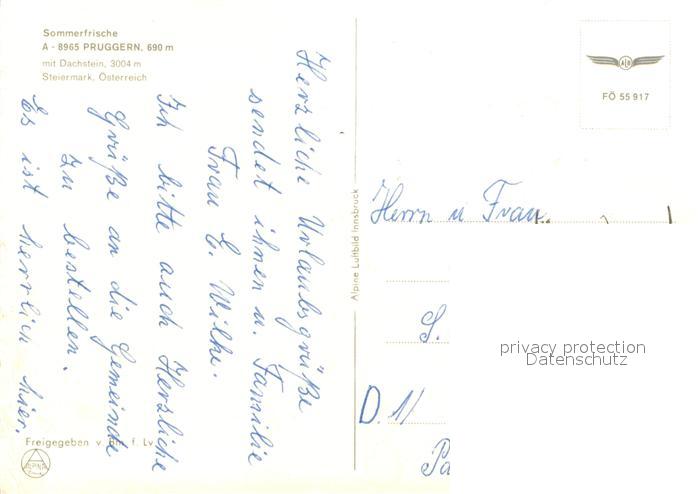 Sommerfrische
A - 8965 PRUGGERN, 690 m
mit Dachstein, 3004 m
Steiermark, Österreich
Herzliche Urlaubsgrüße
sendet ihnen u. Familie
Frau E. Wilke.
Ich bitte auch Herzliche
Grüße an die Gemeinde
zu bestellen.
Es ist herrlich hier.
Freigegeben v. Bm. f. Lv.
ALPINE
Alpine Luftbild Innsbruck
ALI
FÖ 55 917
Herrn u Frau
S.
D. 1/
Pa
privacy protection
Datenschutz